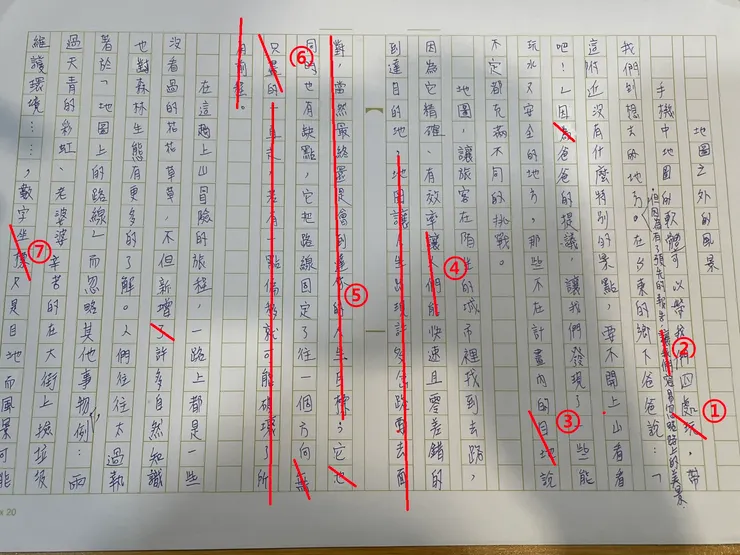 地圖之外的風景
手機中地圖的軟體可以帶我們四處玩,帶
但因為有了預先的報告,讓我們容易忽略路上的美景
我們到想去的地方。在台東的鄉下爸爸說:「
這附近沒有什麼特別的景點,要不開上山看看
吧!」因為爸爸的提議,讓我們發現了一些能
玩水又安全的地方,那些不在計畫內的目地說
不定都充滿不同的挑戰。
地圖,讓旅客在陌生的城市裡找到去路,
因為它精確、有效率讓人們能快速且零差錯的
到達目的地,地圖讓人生路
對,當然最終還是會到達你的人生目標,它也
同時也有缺點,它把路線固定了往一個方向無
只盡的一直走,若有一點偏移就可能破壞了所
有前程。
在這趟上山冒險的旅程,一路上都是一些
沒看過的花花草草,不但新增了許多自然知識
也對森林生態有更多的了解。人們往往太過執
著於「地圖上的路線」而忽略其他事物,例:雨
過天青的彩虹、老婆婆辛苦的在大街上撿垃圾
維護環境……,數字坐標只是目地而風景可能
①
②
③
④
⑤
⑥
⑦
20